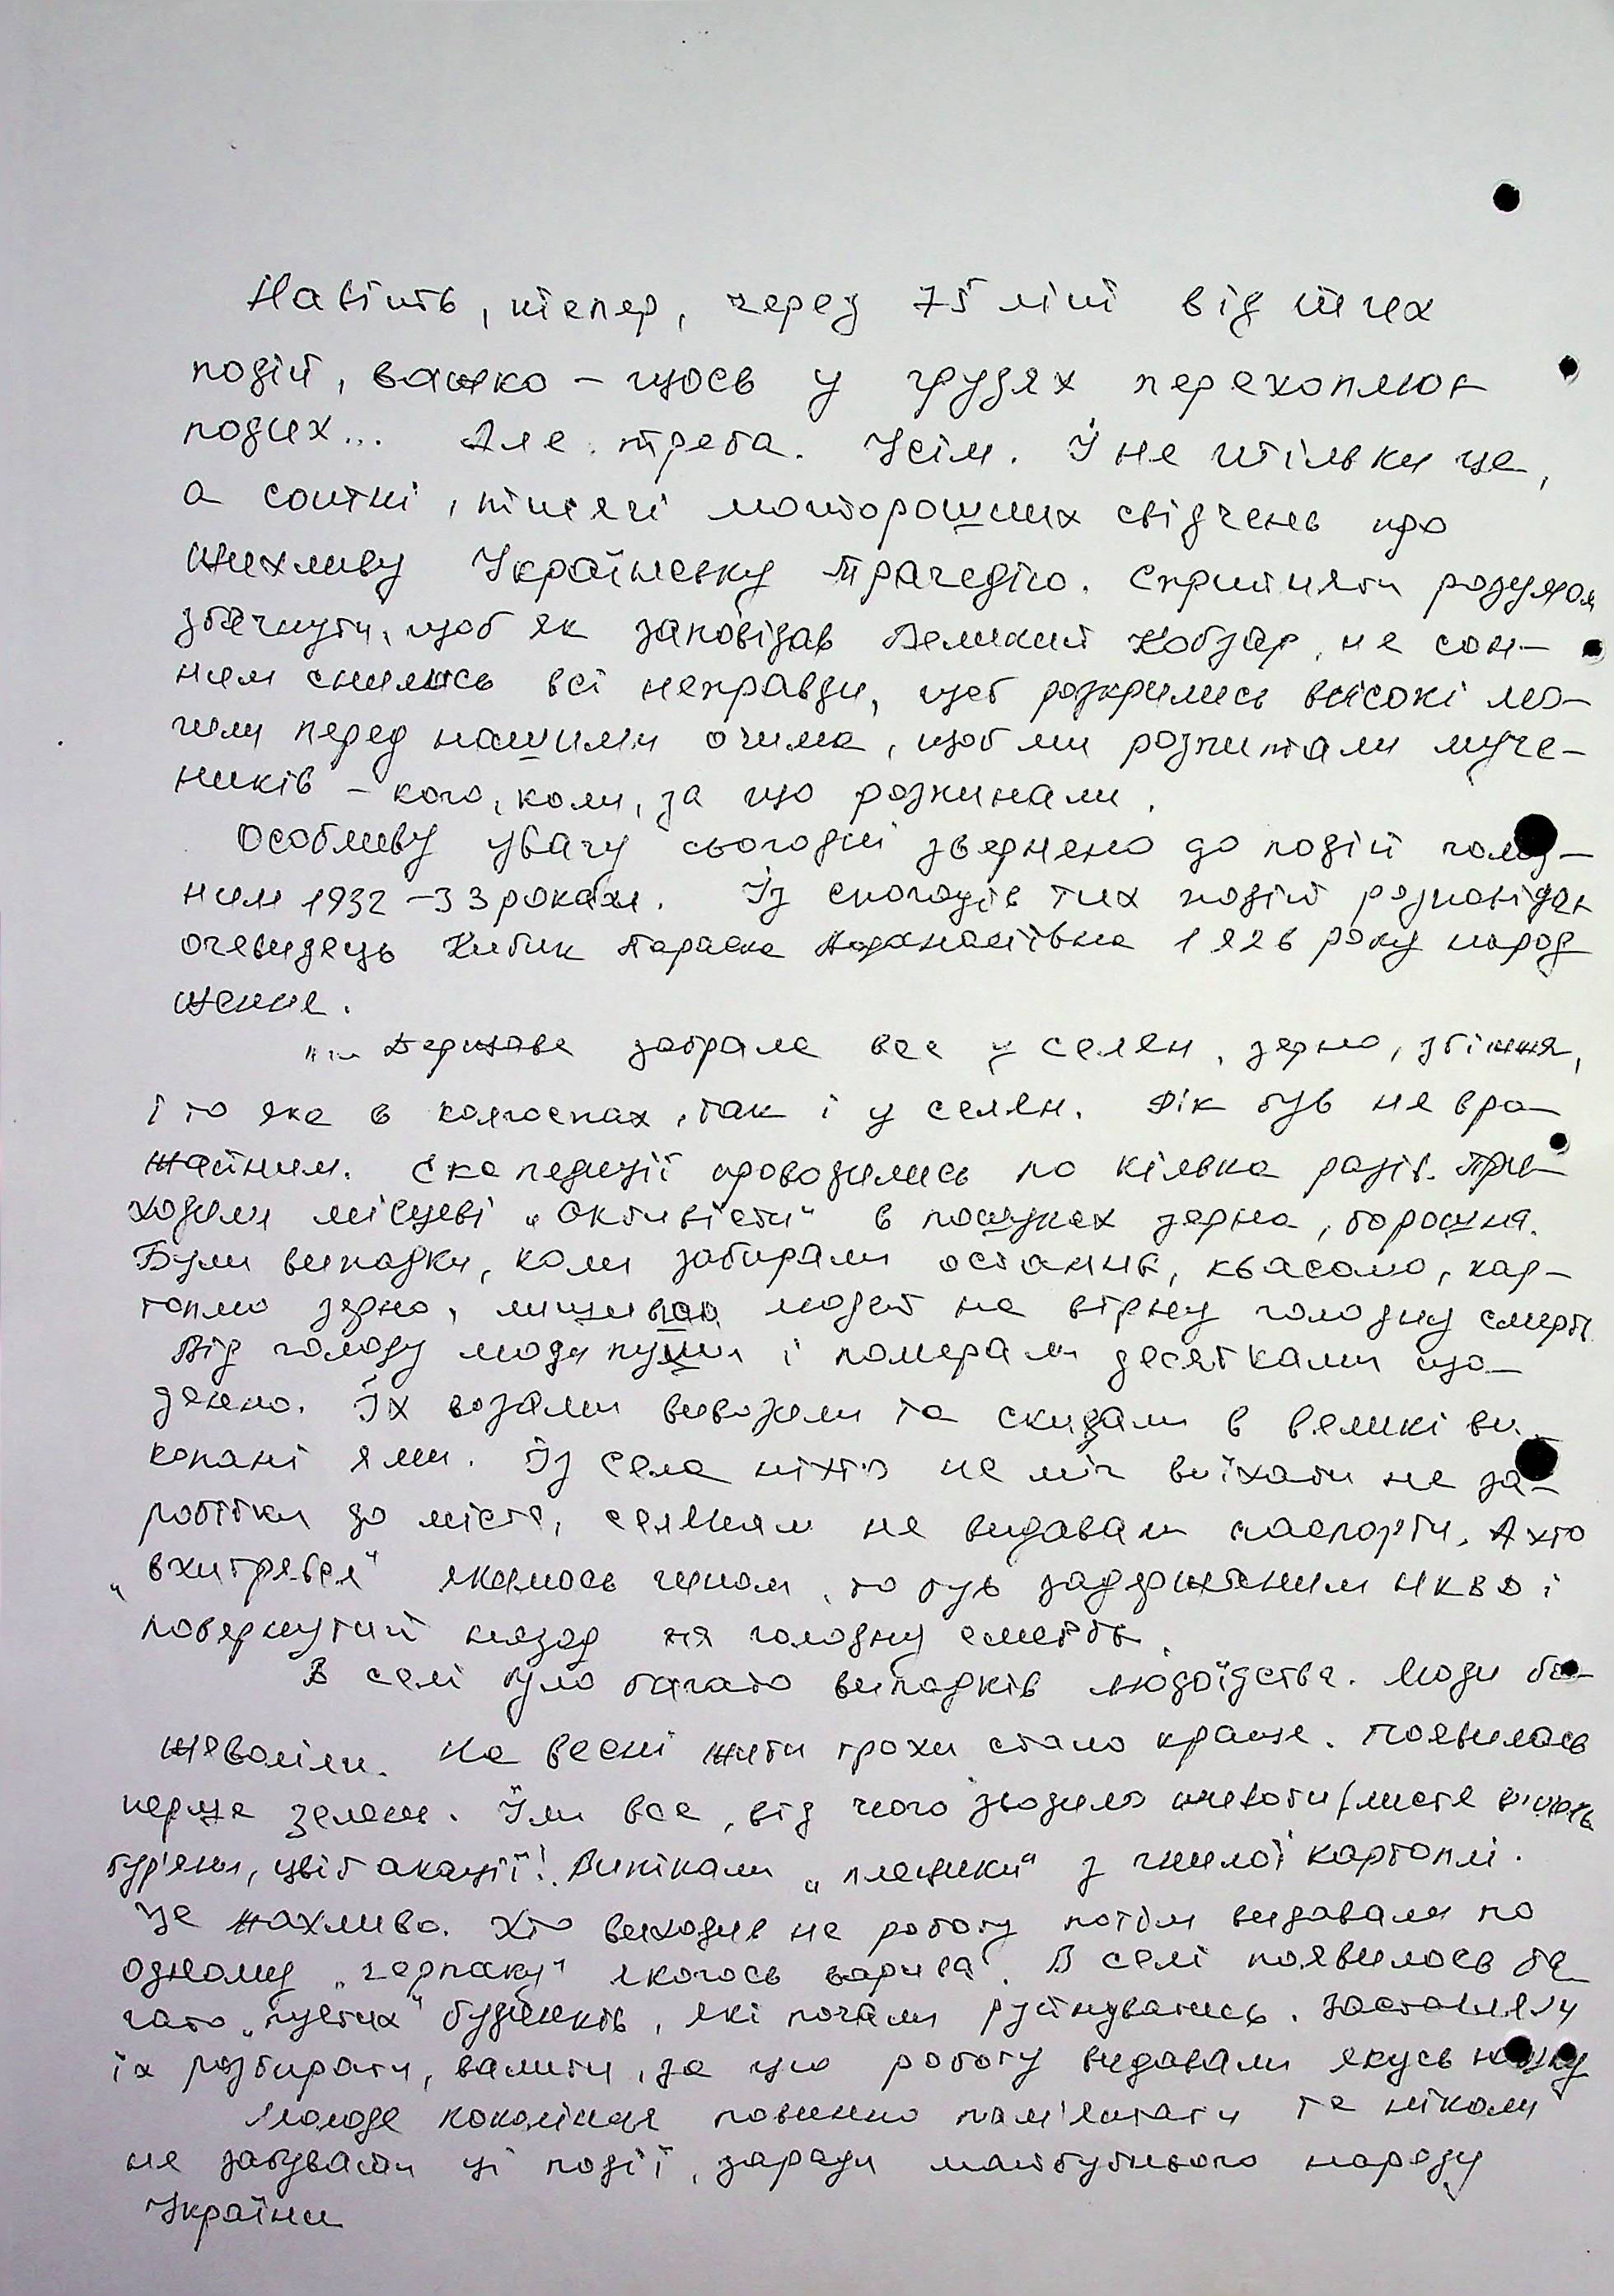 Навіть, тепер, через 75 літ від тих
подій, важко – щось у грудях перехоплює
подих... Але треба. Усім. І не тільки це,
а сотні, тисячі моторошних свідчень про
жахливу Українську трагедію. Сприйняти розумом
збагнути, щоб як заповідав Великий Кобзар, не сон-
ним снились всі неправди, щоб розкрились високі мо-
гили перед нашими очима, щоб ми розпитали муче-
ників – кого, коли, за що розпинали.
Особливу увагу сьогодні звернено до подій голод-
ним 1932–33 роках. Із спогадів тих подій розповідає
очевидець Кибик Параска Афанасіївна 1926 року народ
ження.
"... Держава забрала все у селян, зерно, збіжжя,
і то яке в колгоспах, так і у селян. Рік був не вро-
жайним. Експедиції проводились по кілька разів. При-
ходили місцеві „активісти" в пошуках зерна, борошна.
Були випадки, коли забирали останнє, квасолю, кар-
топлю зерно, лишивши людей на вірну голодну смерть
Від голоду люди пухли і помирали десятками що-
денно. Їх возами вивозили та скидали в великі ви-
копані ями. Із села ніхто не міг виїхати на за-
робітки до міста, селянам не видавали паспорти. А хто
„вхитрявся" якимось чином, то був задержаним НКВД і
повернутий назад на голодну смерть.
В селі було багато випадків людоїдства. Люди бо-
жеволіли. На весні жити трохи стало краще. Появилась
перша зелень. Їли все, від чого зводило животи (листя
бур'яни, цвіт акації! Випікали „плецики" з гнилої картоплі.
Це жахливо. Хто виходив на роботу потім видавали по
одному „черпаку" якогось варива. В селі появилось ба
гато „пустих" будинків, які почали руйнуватись. Заставляли
їх розбирати, валити, за цю роботу видавали якусь
Молоде покоління повинно пам'ятати та ніколи
не забувати ці події, заради майбутнього народу
України